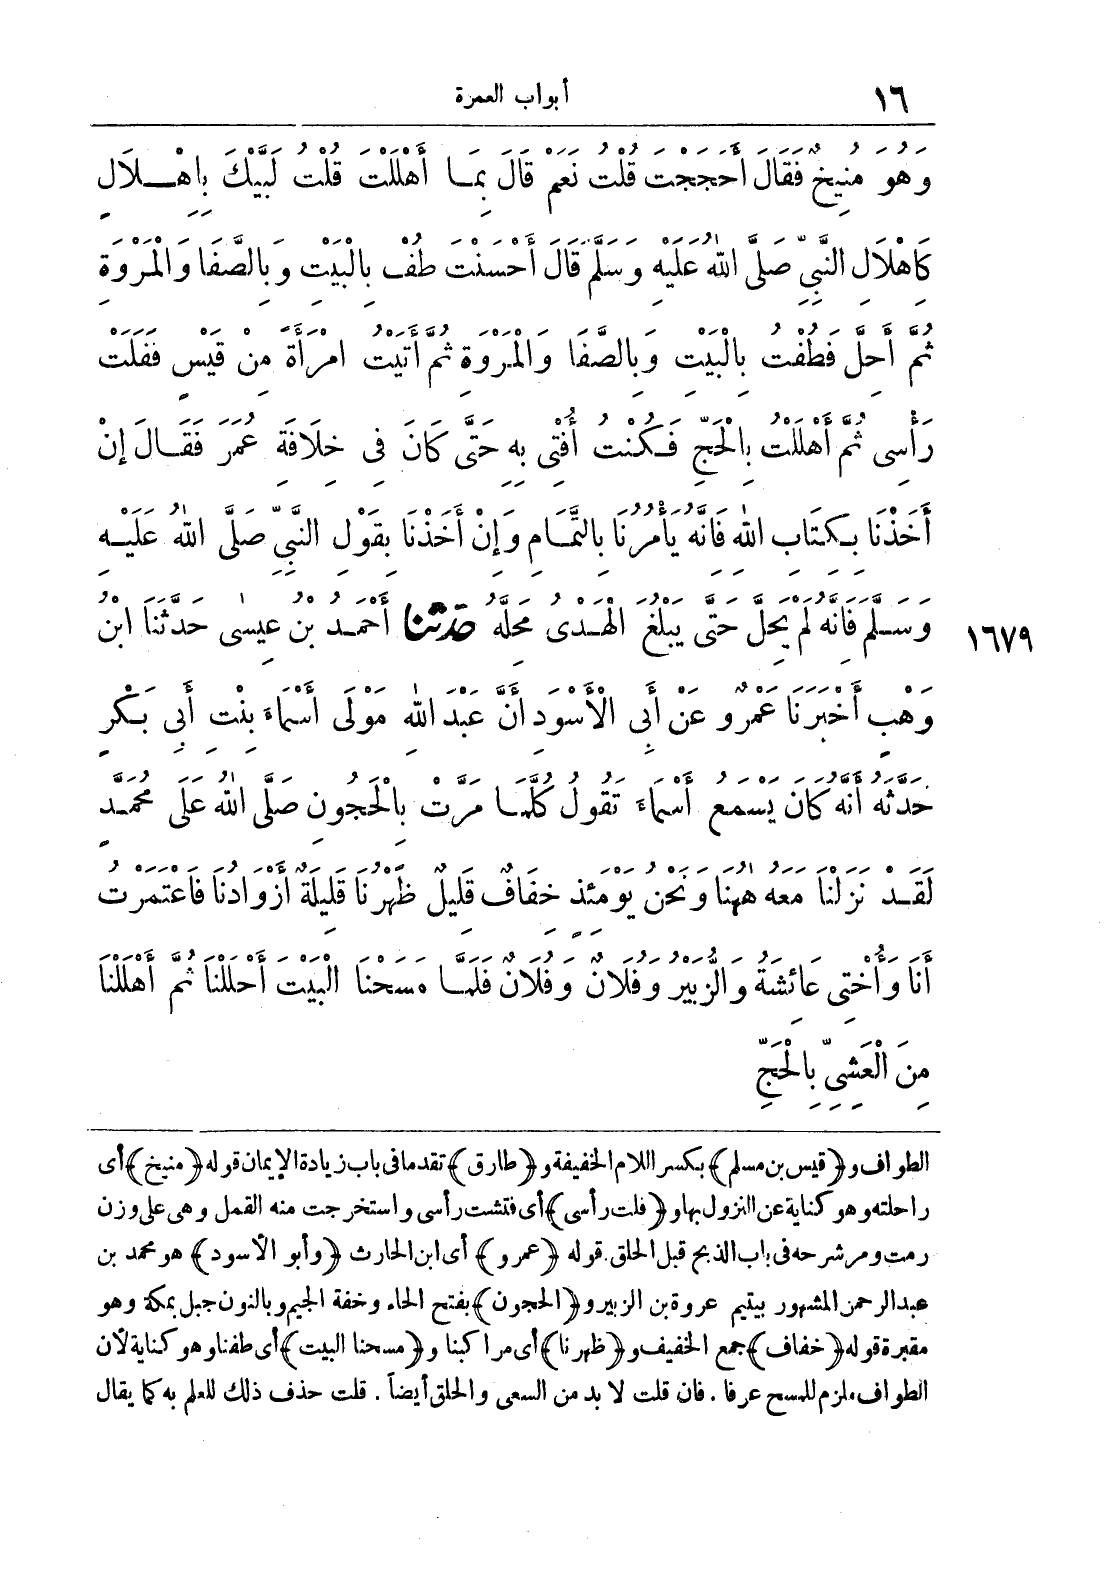 ١٦
أبواب العمرة
وَهُوَ مُنِيخٌ فَقَالَ أَحَجَجْتَ قُلْتُ نَعَمْ قَالَ بِمَا أَهْلَلْتَ قُلْتُ لَبَّيْكَ بِإِهْلَالٍ
كَاهْلَالِ النَّبِيِّ صَلَّى اللهُ عَلَيْهِ وَسَلَّمَ قَالَ أَحْسَنْتَ طُفْ بِالْبَيْتِ وَبِالصَّفَا وَالْمَرْوَةِ
ثُمَّ أَحِلَّ فَطُفْتُ بِالْبَيْتِ وَبِالصَّفَا وَالْمَرْوَةِ ثُمَّ أَتَيْتُ امْرَأَةً مِنْ قَيْسٍ فَفَلَتْ
رَأْسِى ثُمَّ أَهْلَلْتُ بِالْحَجِّ فَكُنْتُ أُفْتِى بِهِ حَتَّى كَانَ فِى خِلَافَةِ عُمَرَ فَقَالَ إِنْ
أَخَذْنَا بِكِتَابِ اللهِ فَانَّهُ يَأْمُرُنَا بِالتَّمَامِ وَإِنْ أَخَذْنَا بِقَوْلِ النَّبِيِّ صَلَّى اللهُ عَلَيْهِ
وَسَلَّمَ فَانَّهُ لَمْ يَحِلَّ حَتَّى يَبْلُغَ الْهَدْىُ مَحِلَّهُ حَدَّثَنَا أَحْمَدُ بْنُ عِيسَى حَدَّثَنَا ابْنُ
١٦٧٩
وَهْبٍ أَخْبَرَنَا عَمْرٌو عَنْ أَبِى الْأَسْوَدِ أَنَّ عَبْدَ اللهِ مَوْلَى أَسْمَاءَ بِنْتِ أَبِى بَكْرٍ
حَدَّثَهُ أَنَّهُ كَانَ يَسْمَعُ أَسْمَاءَ تَقُولُ كُلَّمَا مَرَّتْ بِالْحَجُونِ صَلَّى اللهُ عَلَى مُحَمَّدٍ
لَقَدْ نَزَلْنَا مَعَهُ هٰهُنَا وَنَحْنُ يَوْمَئِذٍ خِفَافٌ قَلِيلٌ ظَهْرُنَا قَلِيلَةٌ أَزْوَادُنَا فَاعْتَمَرْتُ
أَنَا وَأُخْتِى عَائِشَةُ وَالزُّبَيْرُ وَفُلَانٌ وَفُلَانٌ فَلَمَّا مَسَحْنَا الْبَيْتَ أَحْلَلْنَا ثُمَّ أَهْلَلْنَا
مِنَ الْعَشِىِّ بِالْحَجِّ
الطواف و﴿قيس بن مسلم﴾ بكسر اللام الخفيفة و﴿طارق﴾ تقدما فى باب زيادة الإيمان قوله ﴿منيخ﴾ أى
راحلته وهو كناية عن النزول بها و﴿فلت رأسى﴾ أى فتشت رأسى واستخرجت منه القمل وهى على وزن
رمت ومر شرحه فى باب الذبح قبل الحلق. قوله ﴿عمرو﴾ أى ابن الحارث ﴿وأبو الأسود﴾ هو محمد بن
عبدالرحمن المشهور بيتيم عروة بن الزبير و﴿الحجون﴾ بفتح الحاء وخفة الجيم وبالنون جبل بمكة وهو
مقبرة قوله ﴿خفاف﴾ جمع الخفيف و﴿ظهرنا﴾ أى مراكبنا و﴿مسحنا البيت﴾ أى طفنا وهو كناية لأن
الطواف ملزم للمسح عرفا . فان قلت لا بد من السعى والحلق أيضاً . قلت حذف ذلك للعلم به كما يقال